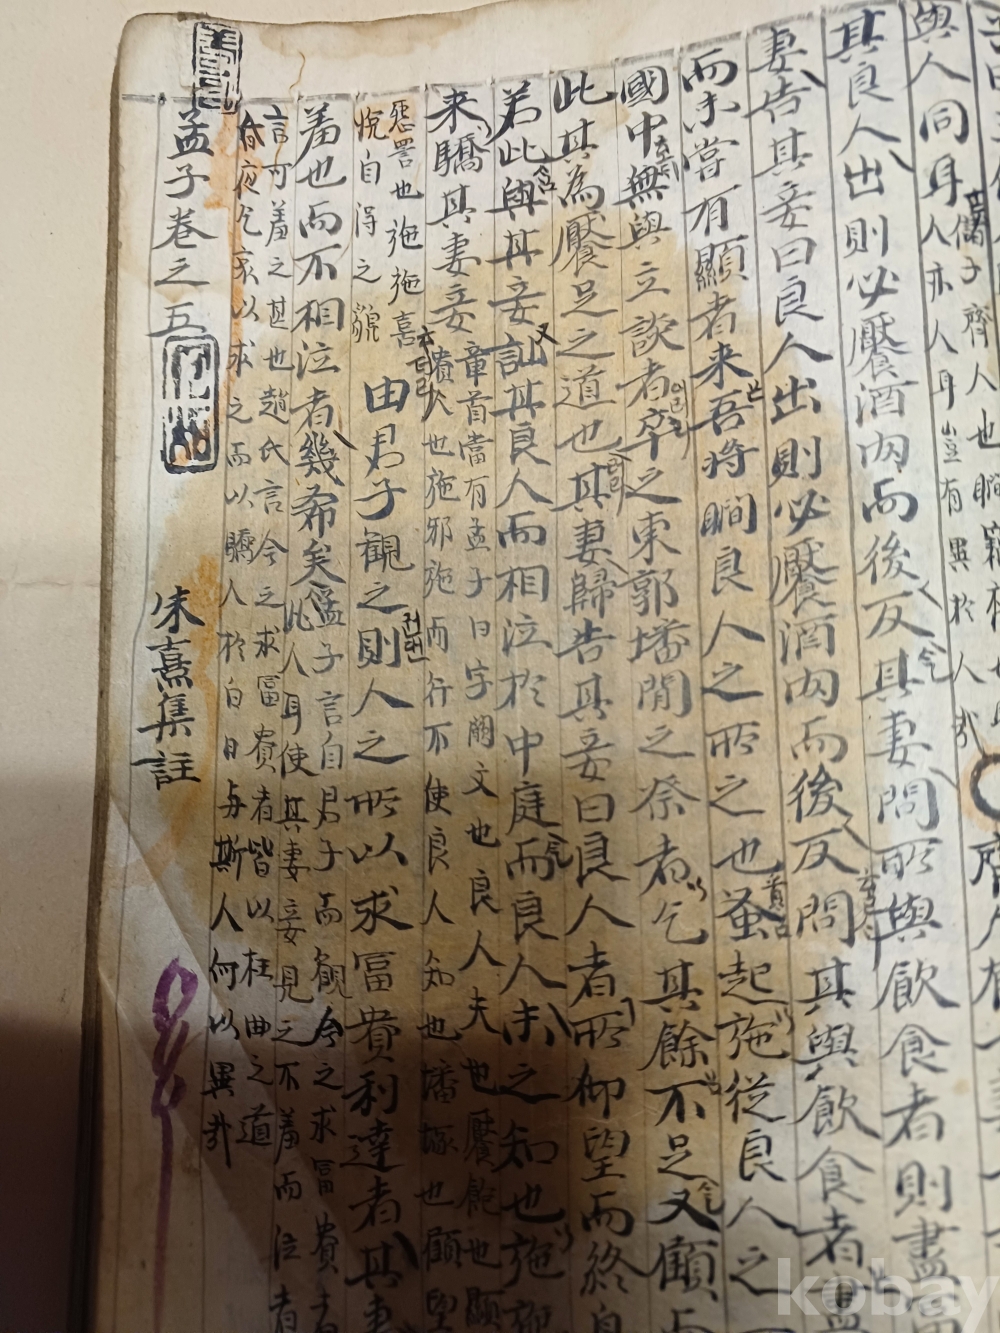 與人同耳
儲子齊人也瞷竊視也
人亦人耳豈有異於人哉
其良人出則必饜酒肉而後反其妻問所與飲食者則盡富
妻告其妾曰良人出則必饜酒肉而後反問其與飲食者盡
而未嘗有顯者来吾將瞷良人之所之也蚤起施從良人之
國中無與立談者卒之東郭墦間之祭者乞其餘不足又顧
此其為饜足之道也其妻歸告其妾曰良人者所仰望而終身
若此與其妾訕其良人而相泣於中庭而良人未之知也施施
来驕其妻妾
章首當有孟子曰字闕文也良人夫也饜飽也顯
人也施邪施而行不使良人知也墦塚也顧望
怨詈也施施喜
悅自得之貌
由君子觀之則人之所以求冨貴利達者其妻
羞也而不相泣者幾希矣
孟子言自君子而觀今之求冨貴者
此人耳使其妻妾見之不羞而泣者
言可羞之甚也趙氏言今之求冨貴者皆以枉曲之道
昏夜乞哀以求之而以驕人於白日与斯人何以異哉
孟子卷之五
朱熹集註
kobay